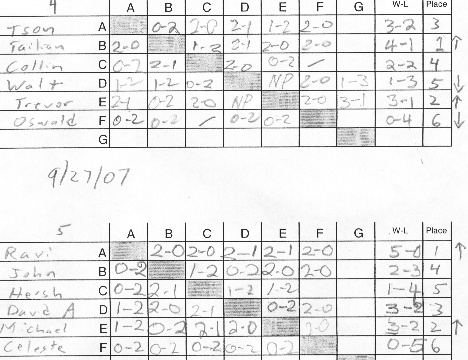 4 A B C D E F G W-L Place
Tson A 0-2 2-0 2-1 1-2 2-0 3-2 3
Tailian B 2-0 1-2 2-1 2-0 2-0 4-1 1 ↑
Collin C 0-2 2-1 2-0 0-2 / 2-2 4
Walt D 1-2 1-2 0-2 NP 2-0 1-3 1-3 5 ↓
Trevor E 2-1 0-2 2-0 NP 2-0 3-1 3-1 2 ↑
Oswald F 0-2 0-2 / 0-2 0-2 0-4 6 ↓
G
9/27/07
5 A B C D E F G W-L Place
Ravi A 2-0 2-0 2-1 2-1 2-0 5-0 1 ↑
John B 0-2 1-2 0-2 2-0 2-0 2-3 4
Hersh C 0-2 2-1 1-2 1-2 1-4 5
David A D 1-2 2-0 2-1 0-2 2-0 3-2 3
Michael E 1-2 0-2 2-1 2-0 2-0 3-2 2 ↑
Celeste F 0-2 0-2 0-2 0-2 0-2 0-5 6